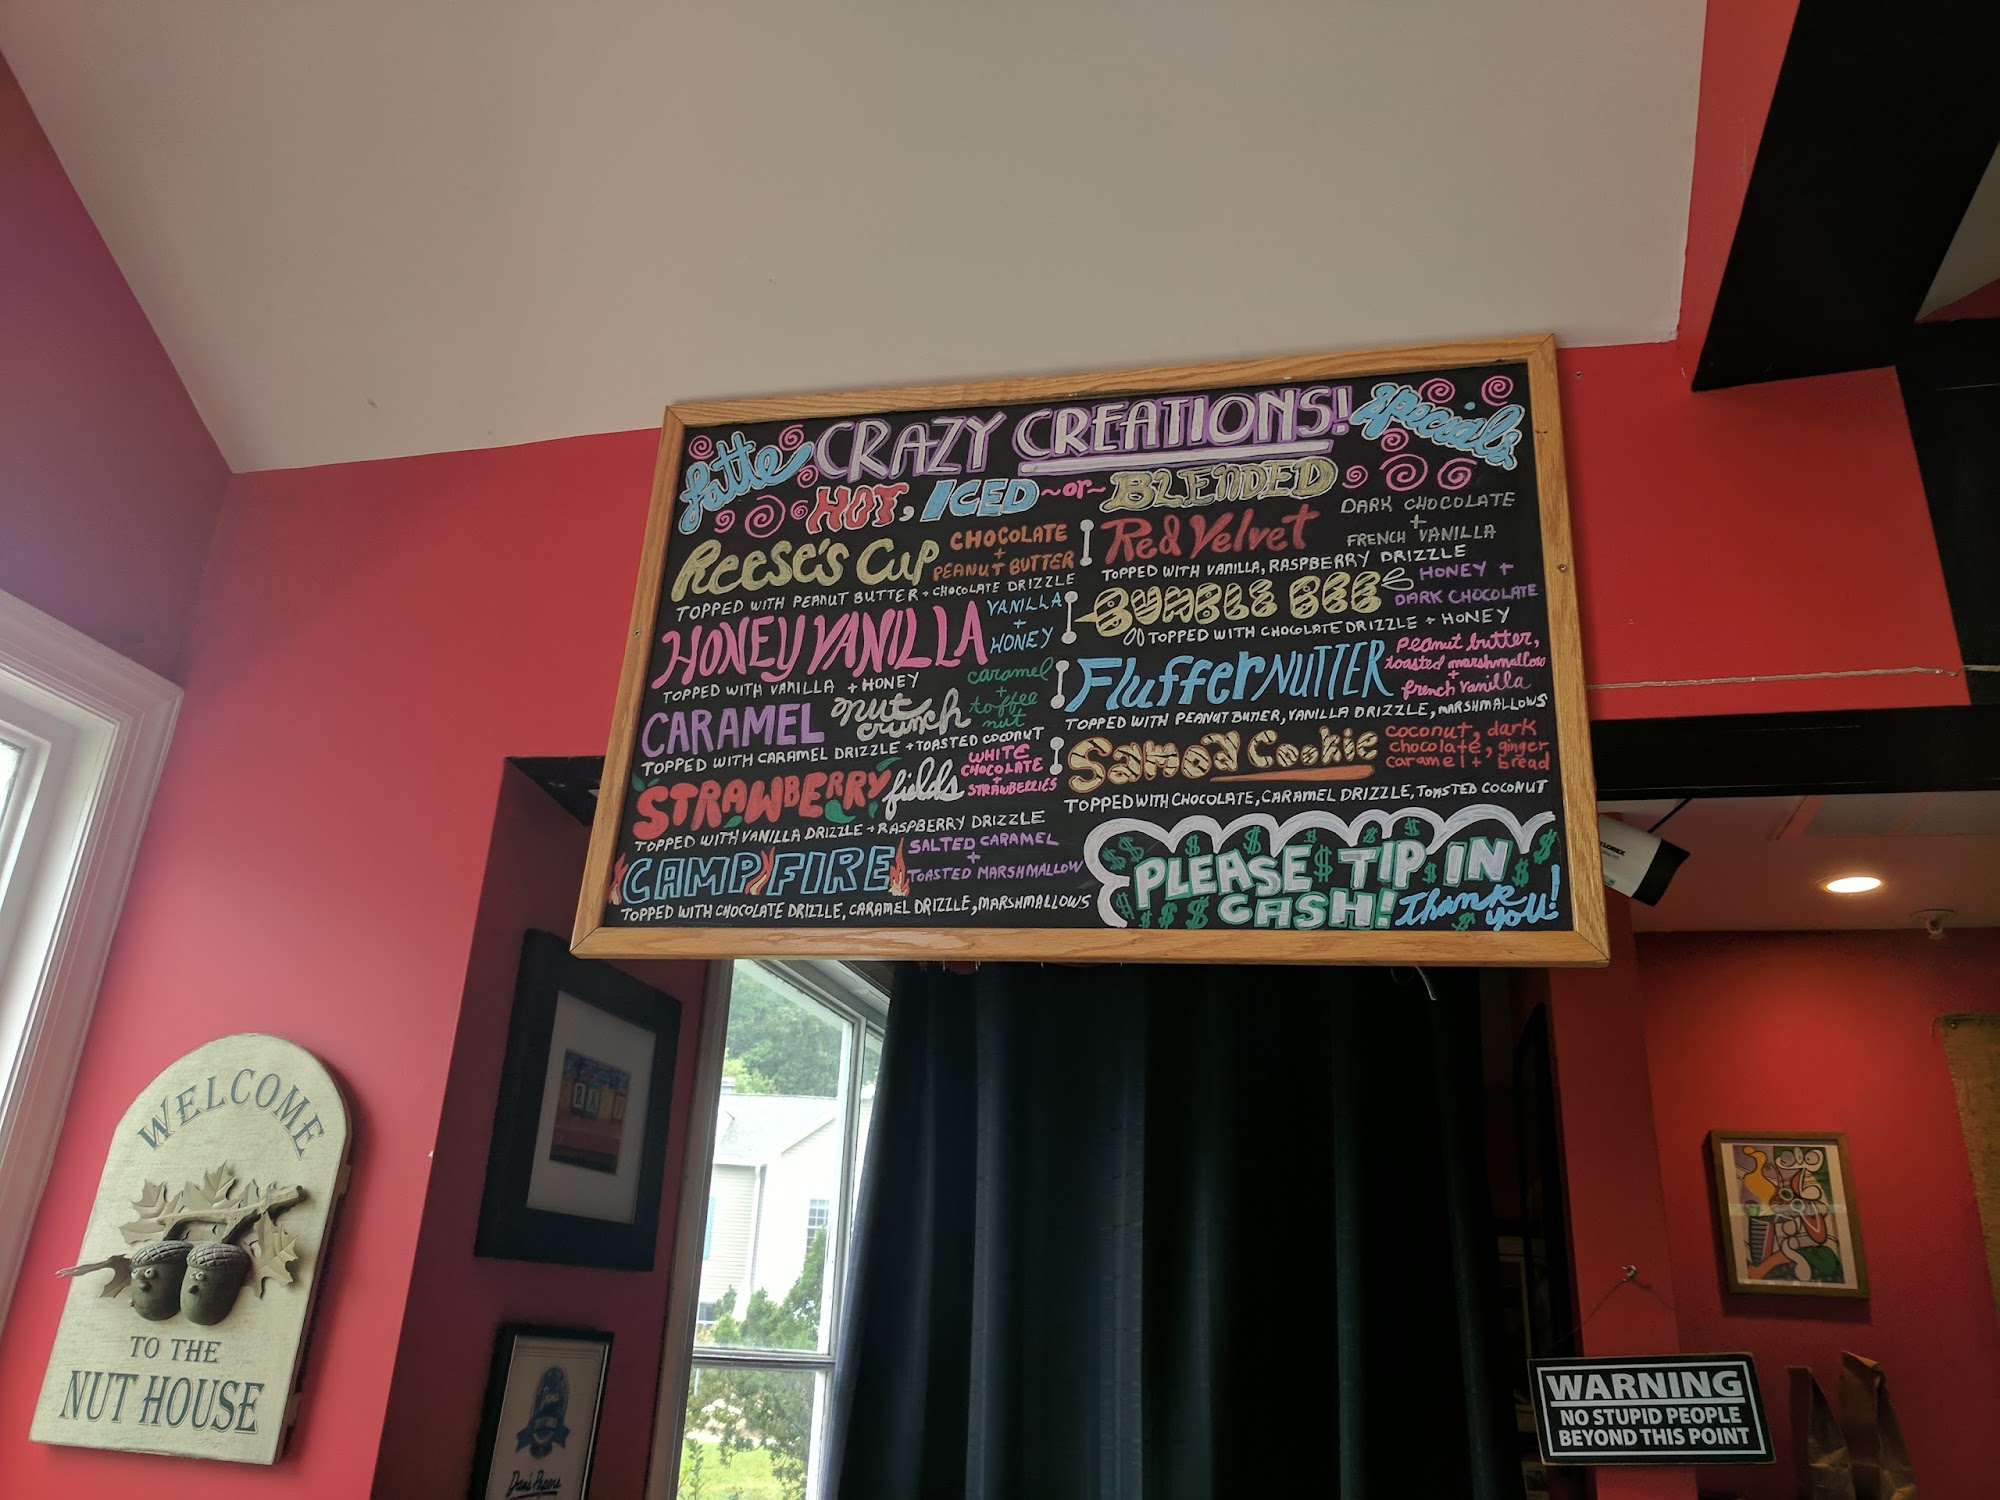 Latte CRAZY CREATIONS! Specials
HOT, ICED ~or~ BLENDED
Reese's Cup CHOCOLATE + PEANUT BUTTER
TOPPED WITH PEANUT BUTTER + CHOCOLATE DRIZZLE
HONEY VANILLA VANILLA + HONEY
TOPPED WITH VANILLA + HONEY
CARAMEL nut crunch caramel + toffee nut
TOPPED WITH CARAMEL DRIZZLE + TOASTED COCONUT
STRAWBERRY fields WHITE CHOCOLATE + STRAWBERRIES
TOPPED WITH VANILLA DRIZZLE + RASPBERRY DRIZZLE
CAMPFIRE SALTED CARAMEL + TOASTED MARSHMALLOW
TOPPED WITH CHOCOLATE DRIZZLE, CARAMEL DRIZZLE, MARSHMALLOWS
Red Velvet DARK CHOCOLATE + FRENCH VANILLA
TOPPED WITH VANILLA, RASPBERRY DRIZZLE
BUMBLE BEE HONEY + DARK CHOCOLATE
TOPPED WITH CHOCOLATE DRIZZLE + HONEY
FlufferNUTTER Peanut butter, toasted marshmallow + french vanilla
TOPPED WITH PEANUT BUTTER, VANILLA DRIZZLE, MARSHMALLOWS
Samoa Cookie coconut, dark chocolate, ginger caramel + bread
TOPPED WITH CHOCOLATE, CARAMEL DRIZZLE, TOASTED COCONUT
$$ PLEASE $ TIP IN $
$$$ CASH! Thank you!
WELCOME
TO THE
NUT HOUSE
WARNING
NO STUPID PEOPLE
BEYOND THIS POINT